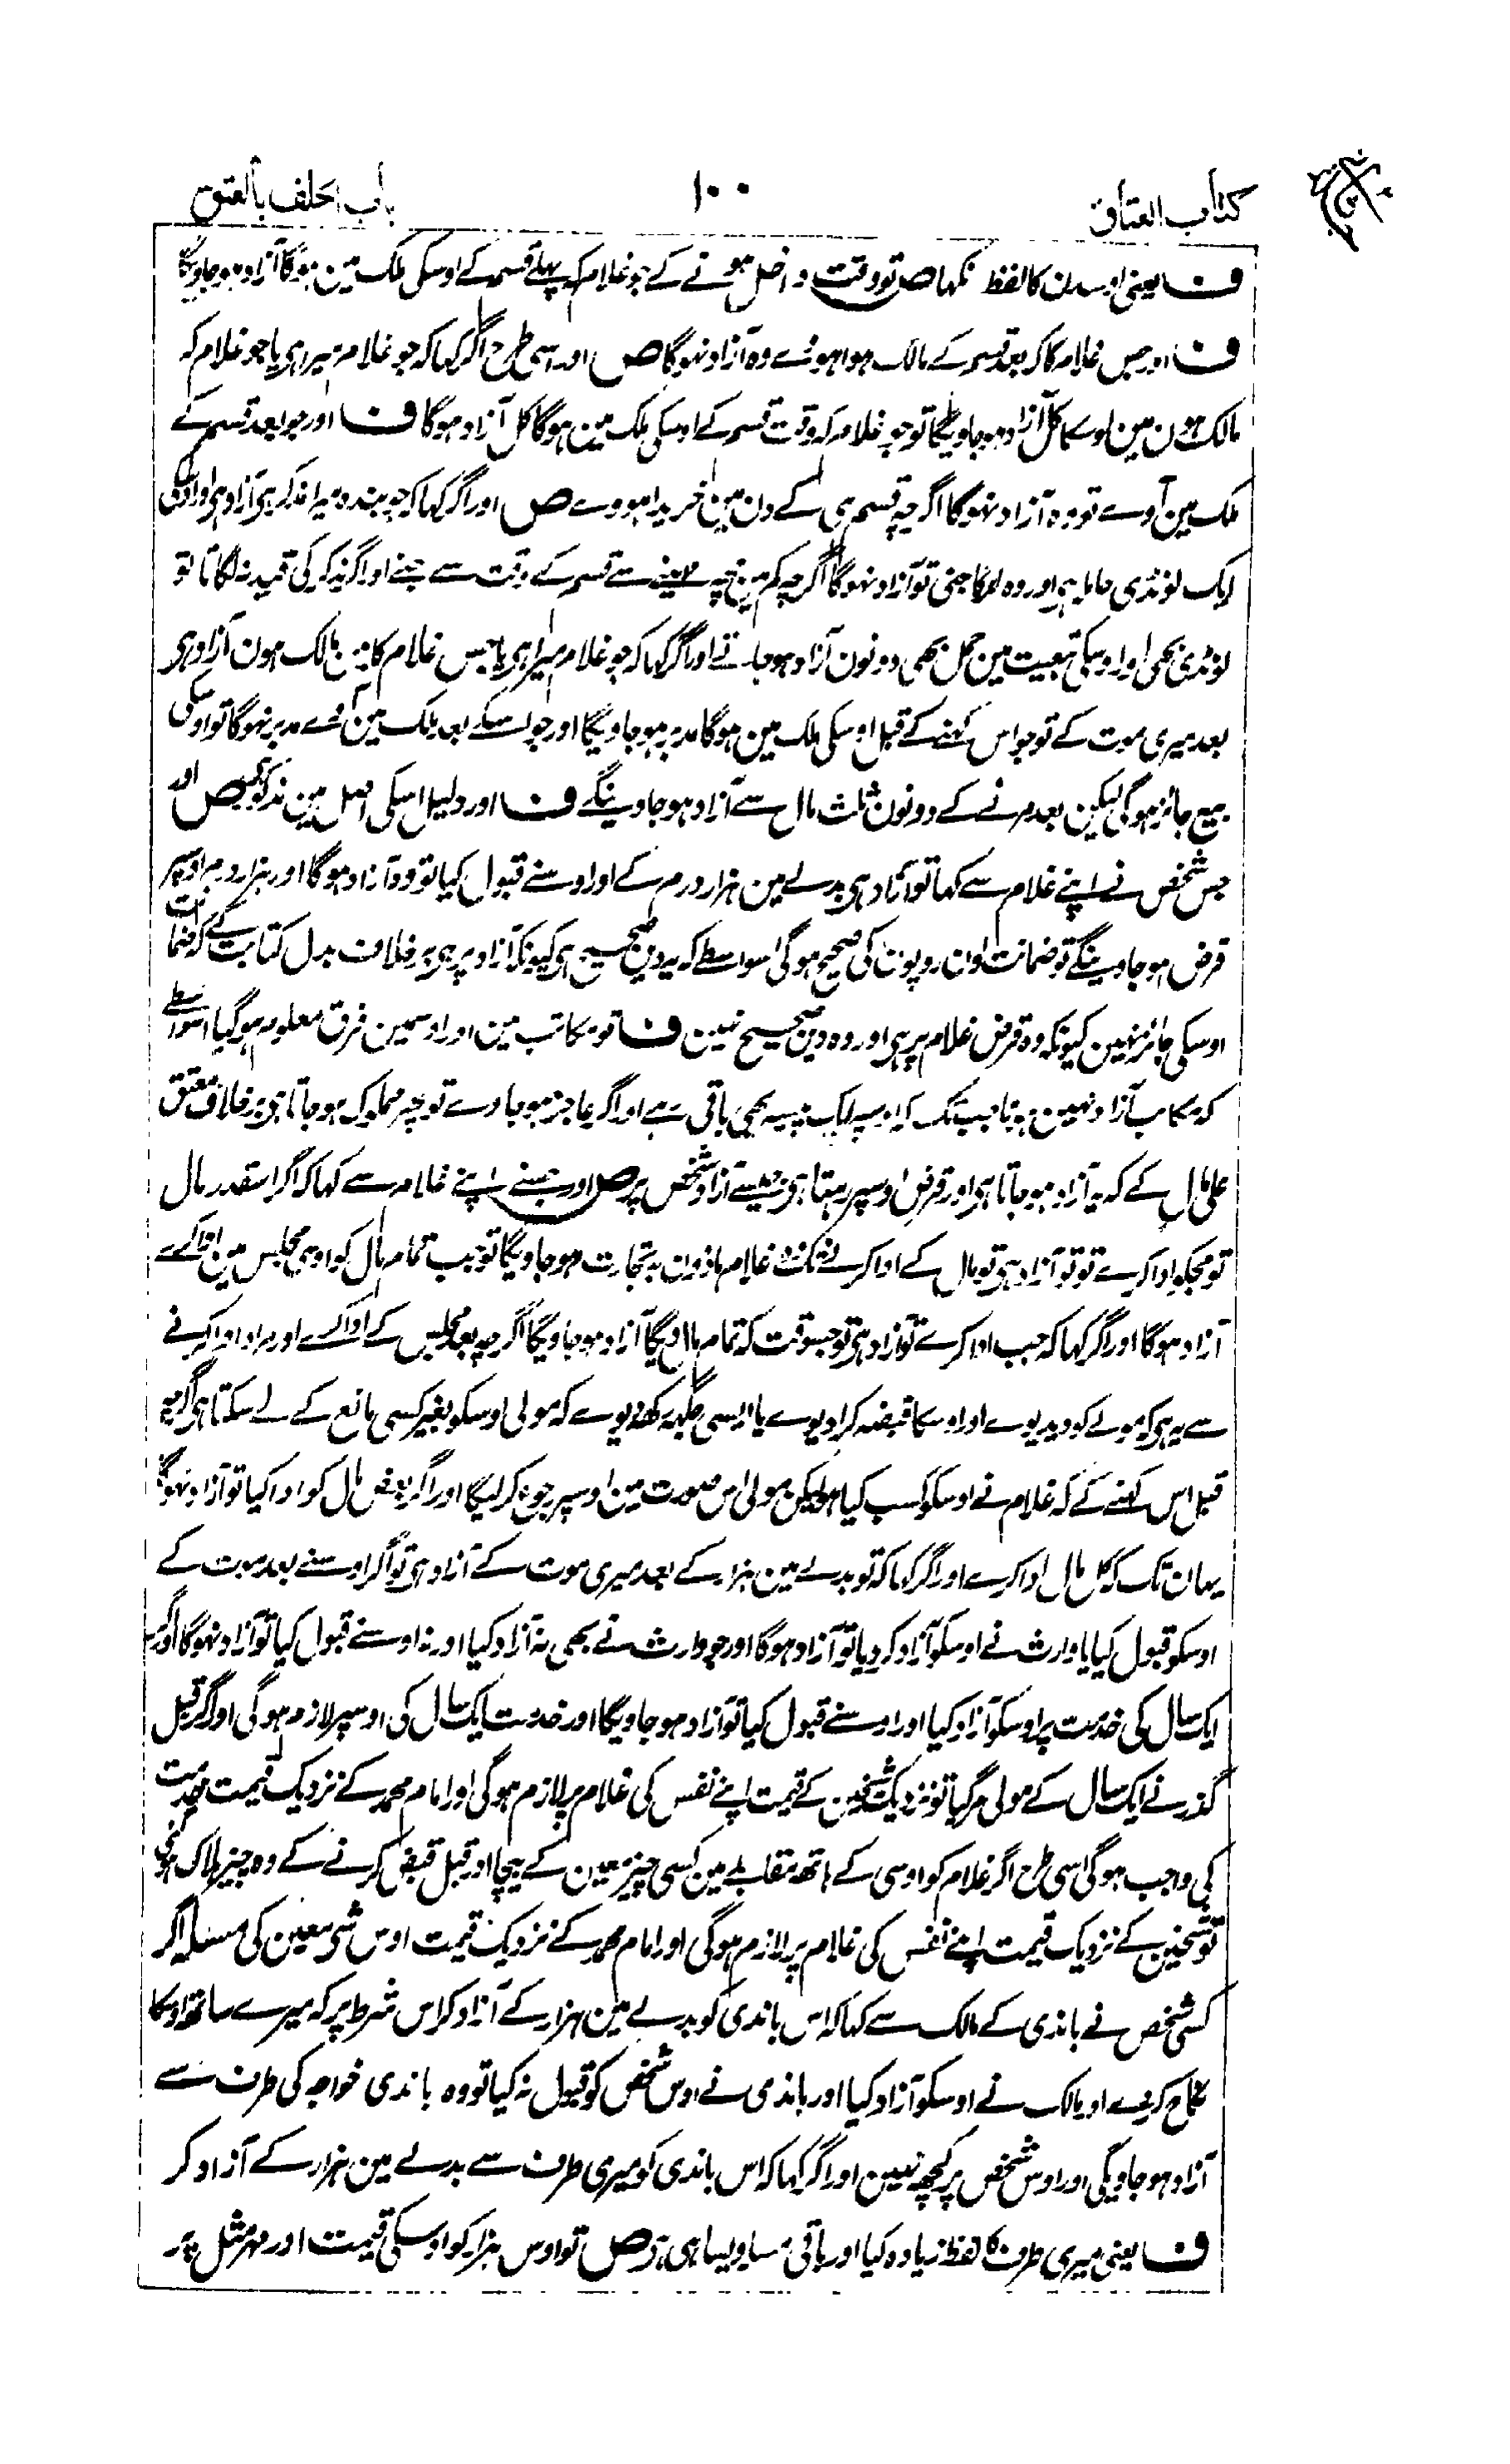 کتاب العتاق
۱۰۰
باب الحلف بالعتق
ف یعنی اوسدن کا لفظ نکہا ص تو وقت داخل ہونے کے جو غلام کہ پہلے قسم کے اوسکی ملک مین ہوگا آزاد ہو جاویگا
ف اور جس غلام کا کہ بعد قسم کے مالک ہوا ہووے وہ آزاد نہوگا ص اور اسی طرح اگر کہا کہ جو غلام میرا ہی یا جو غلام کہ
مالک ہون مین اوسکا کل آزاد ہو جاویگا تو جو غلام کہ وقت قسم کے اوسکی ملک مین ہوگا کل آزاد ہوگا ف اور جو بعد قسم کے
ملک مین آوے تو وہ آزاد نہوگا اگرچہ قسم ہی کے دن مین خریدا ہووے ص اور اگر کہا کہ جو بندہ میرا مذکر ہی آزاد ہی اور اوسکی
ایک لونڈی حاملہ ہی اور وہ لڑکا جنی تو آزاد نہوگا اگرچہ کم مین چھہ مہینے سے قسم کے وقت سے جنے اور اگر مذکر کی قید نہ لگاتا تو
لونڈی بھی اور اوسکی تبعیت مین حمل بھی دونون آزاد ہو جاتے اور اگر کہا کہ جو غلام میرا ہی یا جس غلام کا مین مالک ہون آزاد ہی
بعد میری موت کے تو جو اس کہنے کے قبل اوسکی ملک مین ہوگا مدبر ہو جاویگا اور جو اسکے بعد ملک مین آوے مدبر نہوگا تو اوسکی
بیع جائز ہوگی لیکن بعد مرنے کے دونون ثلث مال سے آزاد ہو جاوینگے ف اور دلیل اسکی اصل مین مذکور ہی ص اور
جس شخص نے اپنے غلام سے کہا تو آزاد ہی بدلے مین ہزار درم کے اور اوسنے قبول کیا تو وہ آزاد ہوگا اور ہزار درم اوسپر
قرض ہو جاوینگے تو ضمانت اون روپون کی صحیح ہوگی اسواسطے کہ یہ دین صحیح ہی کیونکہ آزاد پر ہی برخلاف بدل کتابت کے کہ ضمانت
اوسکی جائز نہین کیونکہ وہ قرض غلام پر ہی اور وہ دین صحیح نہین ف تو مکاتب مین اور اوسمین فرق معلوم ہو گیا اسواسطے
کہ مکاتب آزاد نہین ہوتا جب تک کہ اوسپر ایک پیسہ بھی باقی رہے اور اگر عاجز ہو جاوے تو پھر مملوک ہو جاتا ہی برخلاف معتق
علی مال کے کہ یہ آزاد ہو جاتا ہی اور قرض اوسپر رہتا ہی جیسے آزاد شخص پر ص اور جسنے اپنے غلام سے کہا کہ اگر اسقدر مال
تو مجکو ادا کرے تو تو آزاد ہی تو مال کے ادا کرنے تک غلام ماذون بہ تجارت ہو جاویگا تو جب تمام مال کو اوسی مجلس مین ادا کرے
آزاد ہوگا اور اگر کہا کہ جب ادا کرے تو آزاد ہی تو جسوقت کہ تمام مال دیگا آزاد ہو جاویگا اگرچہ بعد مجلس کے ادا کرے اور مراد ادا کرنے
سے یہ ہی کہ مولے کو دیدیوے اور اوسکا قبضہ کرا دیوے یا ایسی جگہہ رکھدیوے کہ مولی اوسکو بغیر کسی مانع کے لے سکتا ہی اگرچہ
قبل اس کہنے کے کہ غلام نے اوسکو کسب کیا ہو لیکن مولی اس صورت مین اوسپر رجوع کر لیگا اور اگر بعض مال کو ادا کیا تو آزاد نہوگا
یہان تک کہ کل مال ادا کرے اور اگر کہا کہ تو بدلے مین ہزار کے بعد میری موت کے آزاد ہی تو اگر اوسنے بعد موت کے
اوسکو قبول کیا یا وارث نے اوسکو آزاد کر دیا تو آزاد ہوگا اور جو وارث نے بھی نہ آزاد کیا اور نہ اوسنے قبول کیا تو آزاد نہوگا اور اگر
ایک سال کی خدمت پر اوسکو آزاد کیا اور اوسنے قبول کیا تو آزاد ہو جاویگا اور خدمت ایک سال کی اوسپر لازم ہوگی اور اگر قبل
گذرنے ایک سال کے مولی مر گیا تو نزدیک شیخین کے قیمت اپنے نفس کی غلام پر لازم ہوگی اور امام محمد کے نزدیک قیمت خدمت
کی واجب ہوگی اسی طرح اگر غلام کو اوسی کے ہاتھ مقابلے مین کسی چیز معین کے بیچا اور قبل قبض کرنے کے وہ چیز ہلاک ہو گئی
تو شیخین کے نزدیک قیمت اپنے نفس کی غلام پر لازم ہوگی اور امام محمد کے نزدیک قیمت اوس شی معین کی مسئلہ اگر
کسی شخص نے باندی کے مالک سے کہا کہ اس باندی کو بدلے مین ہزار کے آزاد کر اس شرط پر کہ میرے ساتھ اوسکا
نکاح کر دے اور مالک نے اوسکو آزاد کیا اور باندی نے اوس شخص کو قبول نہ کیا تو وہ باندی خواجہ کی طرف سے
آزاد ہو جاویگی اور اوس شخص پر کچھ نہین اور اگر کہا کہ اس باندی کو میری طرف سے بدلے مین ہزار کے آزاد کر
ف یعنی میری طرف کا لفظ زیادہ کیا اور باقی ویسا ہی ہی ص تو اوس ہزار کو اوسکی قیمت اور مہر مثل پر